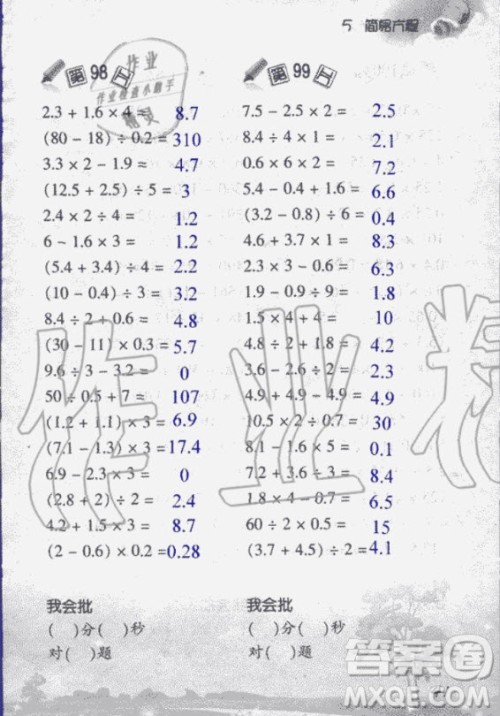 5 简易方程
第98日
2.3 + 1.6 × 4 = 8.7
(80 − 18) ÷ 0.2 = 310
3.3 × 2 − 1.9 = 4.7
(12.5 + 2.5) ÷ 5 = 3
2.4 × 2 ÷ 4 = 1.2
6 − 1.6 × 3 = 1.2
(5.4 + 3.4) ÷ 4 = 2.2
(10 − 0.4) ÷ 3 = 3.2
8.4 ÷ 2 + 0.6 = 4.8
(30 − 11) × 0.3 = 5.7
9.6 ÷ 3 − 3.2 = 0
50 ÷ 0.5 + 7 = 107
(1.2 + 1.1) × 3 = 6.9
(7.1 − 1.3) × 3 = 17.4
6.9 − 2.3 × 3 = 0
(2.8 + 2) ÷ 2 = 2.4
4.2 + 1.5 × 3 = 8.7
(2 − 0.6) × 0.2 = 0.28
我会批
( )分( )秒
对( )题
第99日
7.5 − 2.5 × 2 = 2.5
8.4 ÷ 4 × 1 = 2.1
0.6 × 6 × 2 = 7.2
5.4 − 0.4 + 1.6 = 6.6
(3.2 − 0.8) ÷ 6 = 0.4
4.6 + 3.7 × 1 = 8.3
2.3 × 3 − 0.6 = 6.3
1.9 − 0.9 ÷ 9 = 1.8
1.5 × 4 ÷ 0.6 = 10
4.8 ÷ 2 + 1.8 = 4.2
4.9 + 4.9 − 4.9 = 4.9
10.5 × 2 ÷ 0.7 = 30
8.1 − 1.6 × 5 = 0.1
7.2 + 3.6 ÷ 3 = 8.4
1.8 × 4 − 0.7 = 6.5
60 ÷ 2 × 0.5 = 15
(3.7 + 4.5) ÷ 2 = 4.1
我会批
( )分( )秒
对( )题
作业
作业检查小助手
作业精
答案圈
MXQE.COM